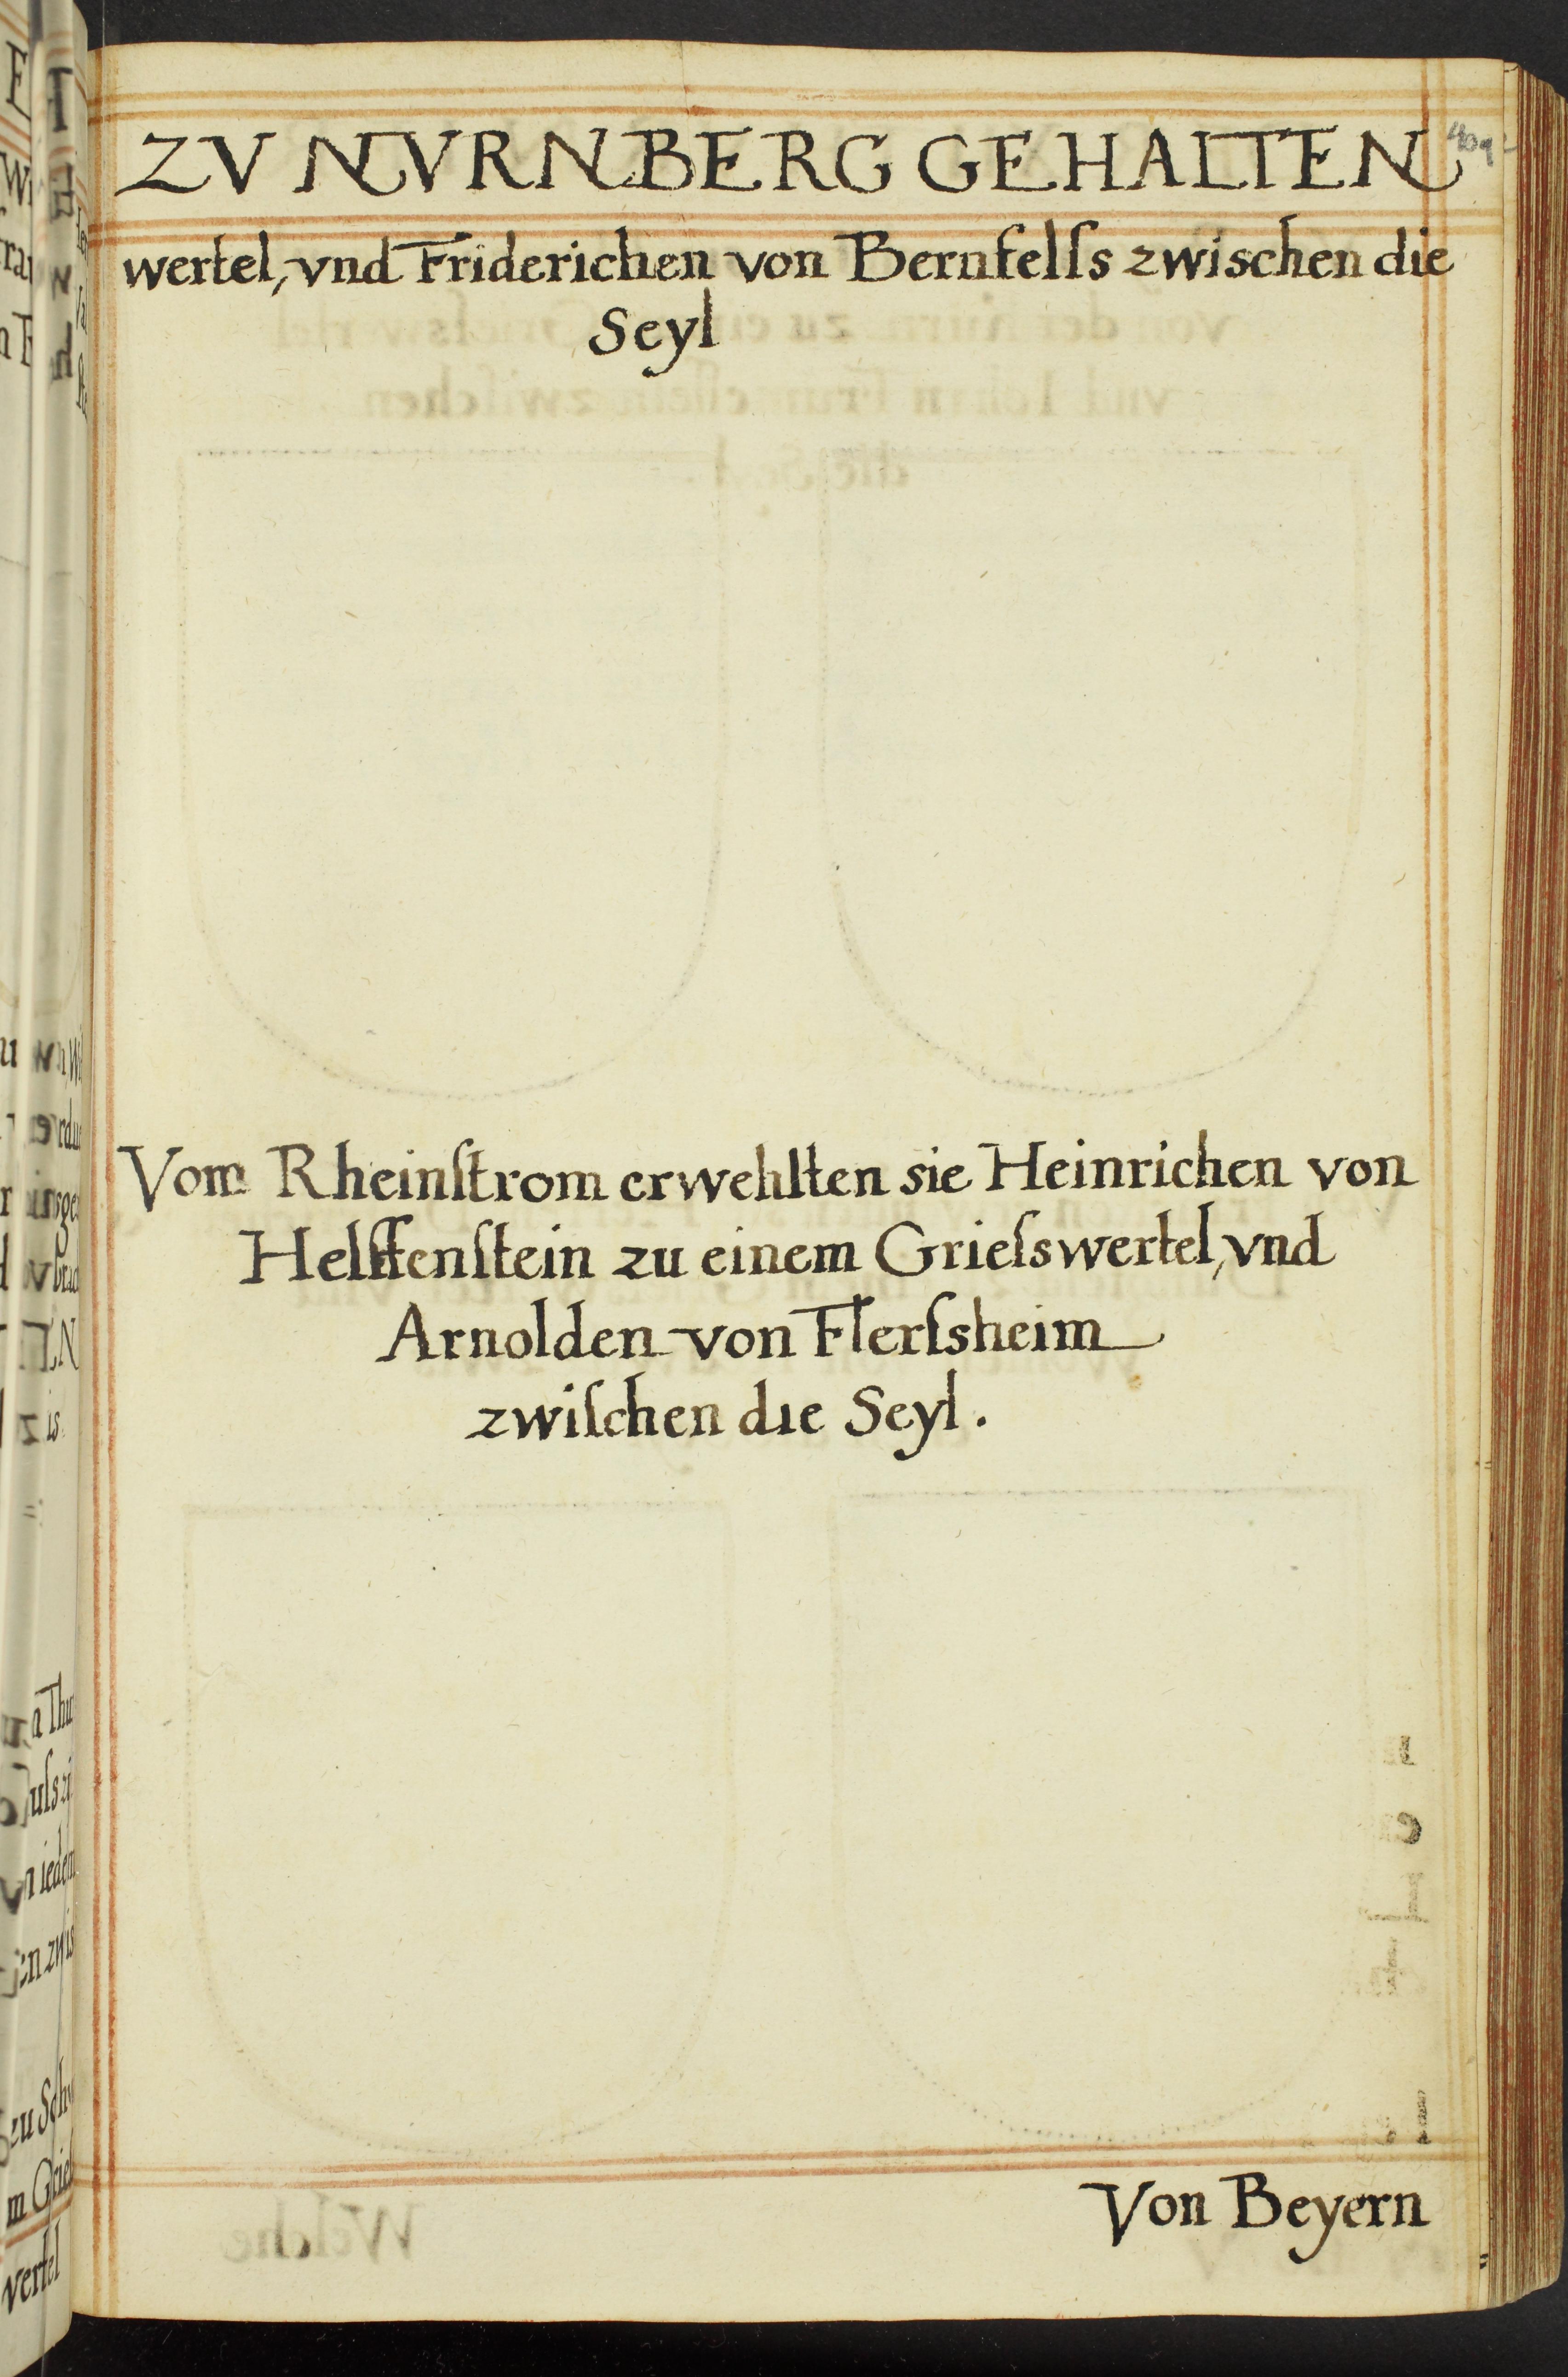 ZV NVRNBERG GEHALTEN
wertel, vnd Friderichen von Bernfelſs zwischen die
Seyl
Vom Rheinſtrom erwehlten sie Heinrichen von
Helffenſtein zu einem Grieſswertel, vnd
Arnolden von Flerſsheim
zwiſchen die Seyl.
Von Beyern